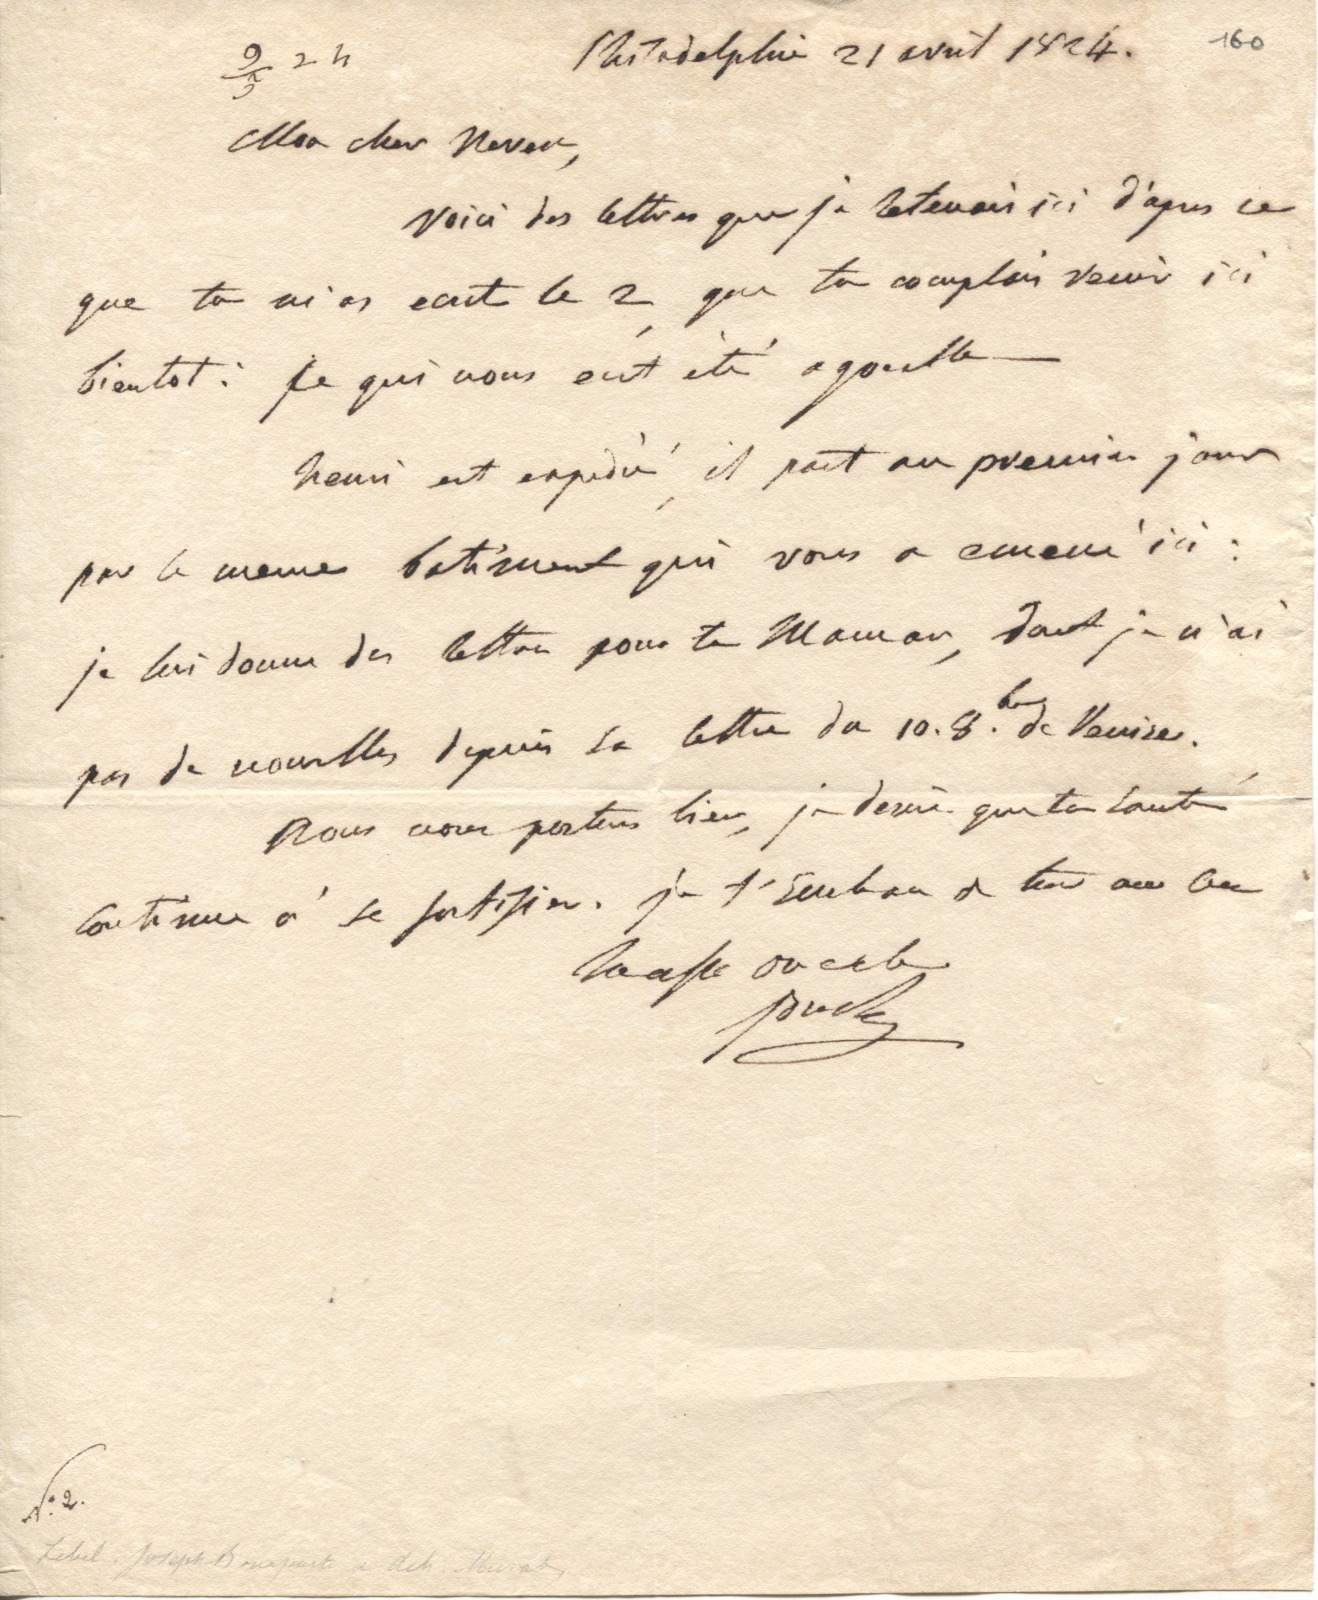 160
9/5 24
Philadelphie 21 avril 1824.
Mon cher Neveu,
Voici des lettres que je retenais ici d'apres ce
que tu m'as ecrit le 2, que tu comptais venir ici
bientot : ce qui nous eut été agreable
henri est expedié, il part au premier jour
par le meme batiment qui vous a amené ici :
je lui donne des lettres pour ta Maman, dont je n'ai
pas de nouvelles depuis sa lettre du 10. 8.bre de Venise.
Nous nous portons bien, je desire que ta santé
continue à se fortifier. je t'embrasse de tout mon cœur
ton aff oncle
Joseph
N.º 2.
Joseph Bonaparte a Murat